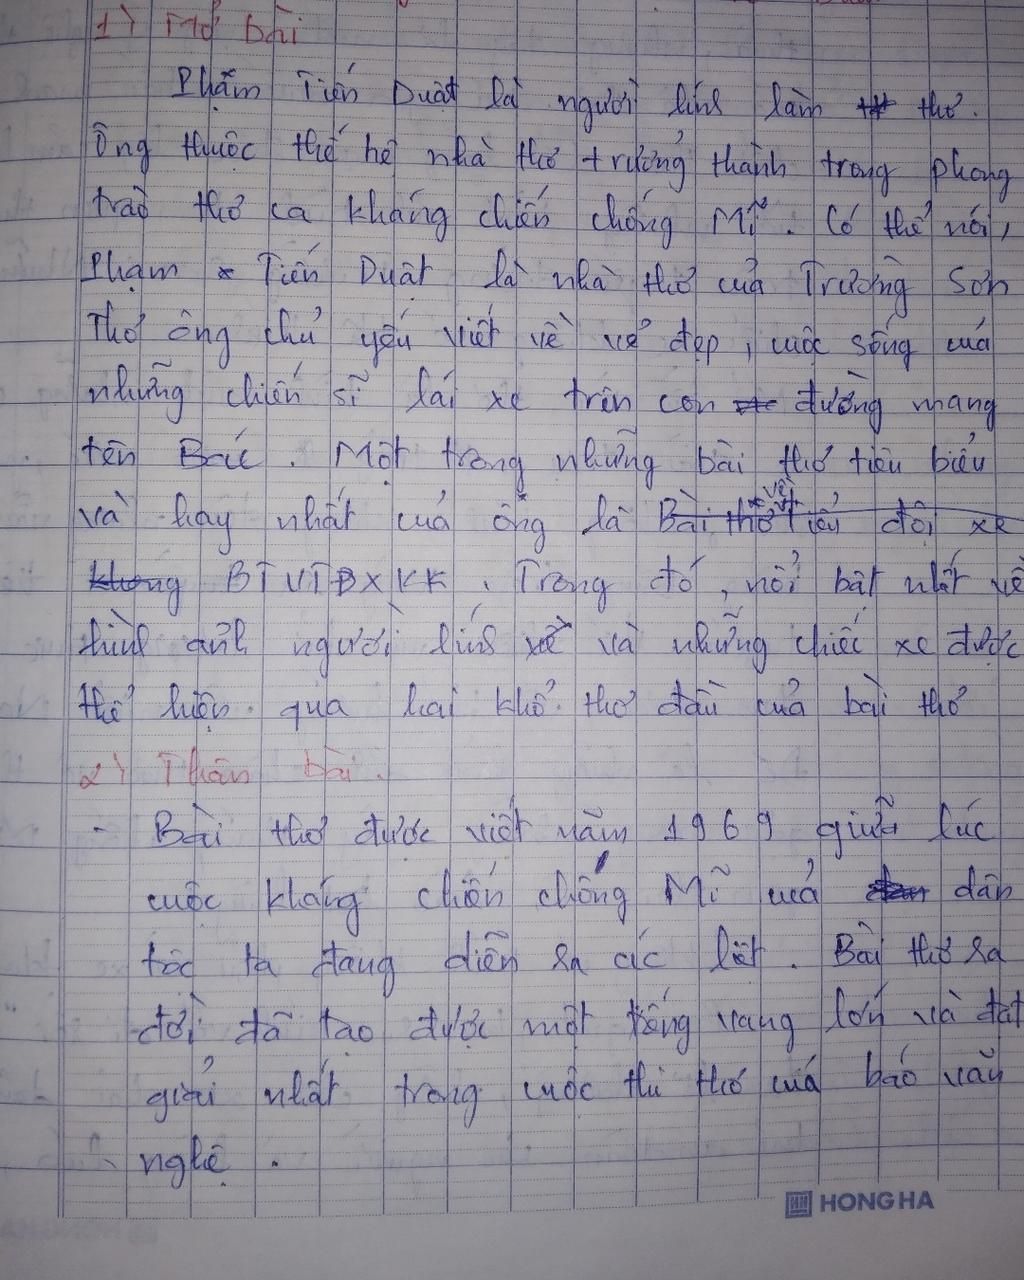 1) Mở bài
Phạm Tiến Duật là người lính làm thơ.
Ông thuộc thế hệ nhà thơ trưởng thành trong phong
trào thơ ca kháng chiến chống Mĩ. Có thể nói,
Phạm Tiến Duật là nhà thơ của Trường Sơn
Thơ ông chủ yếu viết về vẻ đẹp, cuộc sống của
những chiến sĩ lái xe trên con đường mang
tên Bác. Một trong những bài thơ tiêu biểu
và hay nhất của ông là Bài thơ về Tiểu đội xe
không BTVTĐXKK. Trong đó, nổi bật nhất về
hình ảnh người lính và những chiếc xe được
thể hiện qua hai khổ thơ đầu của bài thơ
2) Thân bài.
- Bài thơ được viết năm 1969 giữa lúc
cuộc kháng chiến chống Mĩ của dân
tộc ta đang diễn ra ác liệt. Bài thơ ra
đời đã tạo được một tiếng vang lớn và đạt
giải nhất trong cuộc thi thơ của báo văn
nghệ.
HONG HA